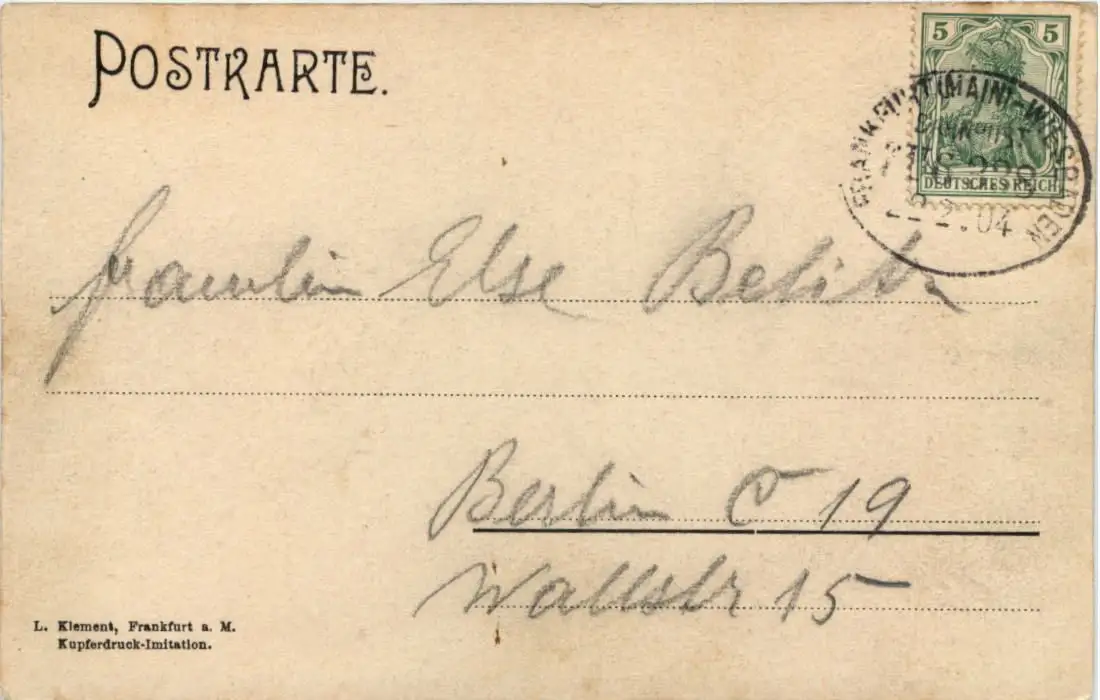 POSTKARTE.
5 5
FRANKFURT (MAIN)-WIESBADEN
BAHNPOST
DEUTSCHES REICH
2.04
Fräulein Else Belitz
Berlin C 19
Wallstr 15
L. Klement, Frankfurt a. M.
Kupferdruck-Imitation.